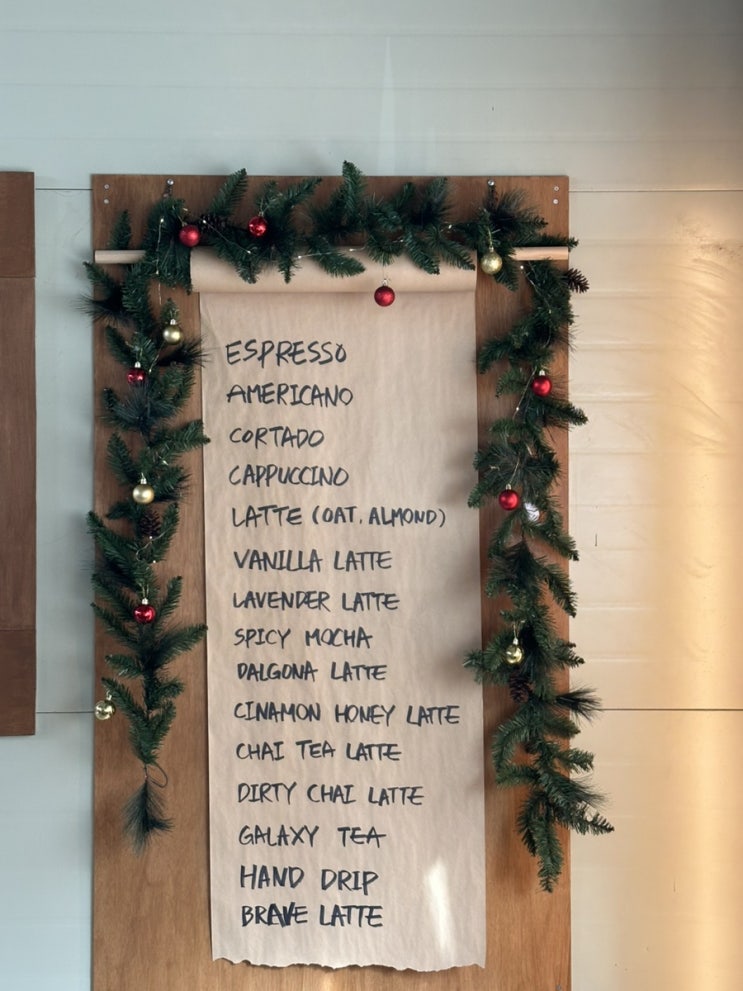 ESPRESSO
AMERICANO
CORTADO
CAPPUCCINO
LATTE (OAT, ALMOND)
VANILLA LATTE
LAVENDER LATTE
SPICY MOCHA
DALGONA LATTE
CINAMON HONEY LATTE
CHAI TEA LATTE
DIRTY CHAI LATTE
GALAXY TEA
HAND DRIP
BRAVE LATTE